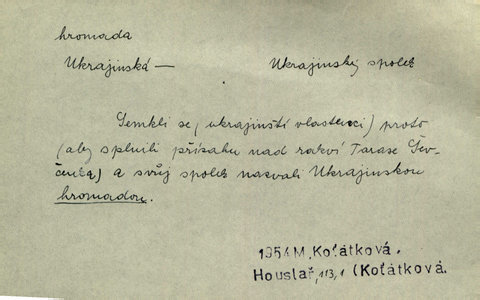 hromada
Ukrajinská — Ukrajinský spolek
Semkli se (ukrajinští vlastenci) proto
(aby splnili přísahu nad rakví Tarase Šev-
čenka) a svůj spolek nazvali Ukrajinskou
hromadou.
1954 M, Koťátková.
Houslař, 113, 1 (Koťátková.